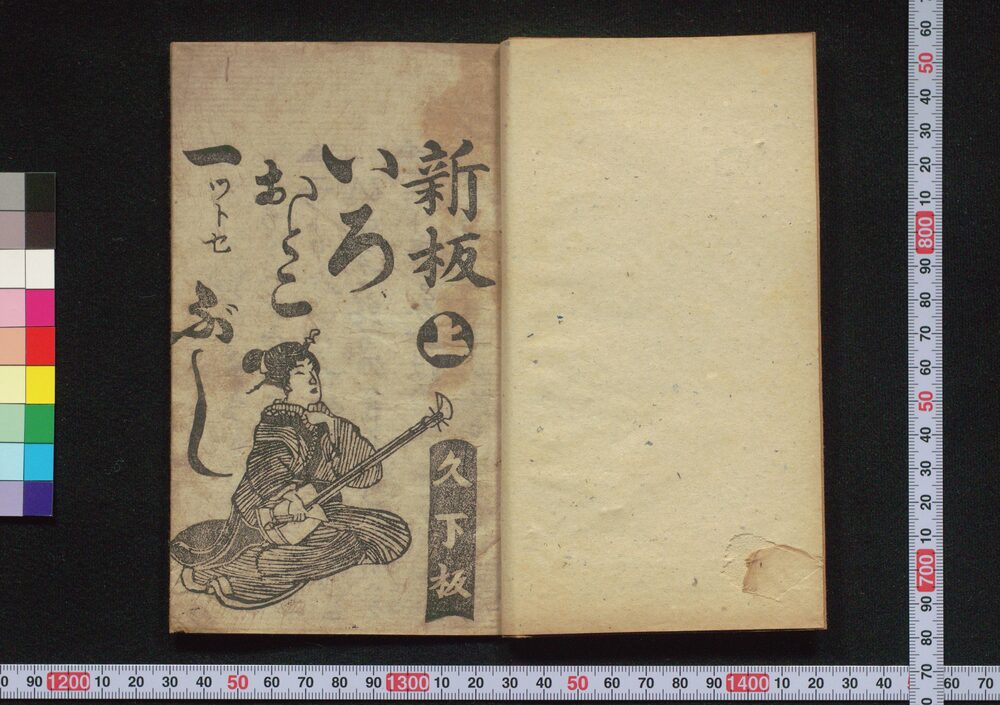 新板 上
いろ
おとこ
一ツトセ
ぶし
久下板
60
50
40
30
20
10
800
90
80
70
60
50
40
30
20
10
700
90
80
70
0 90 1200 10 20 30 40 50 60 70 80 90 1300 10 20 30 40 50 60 70 80 90 1400 10 20 30 40
60 70